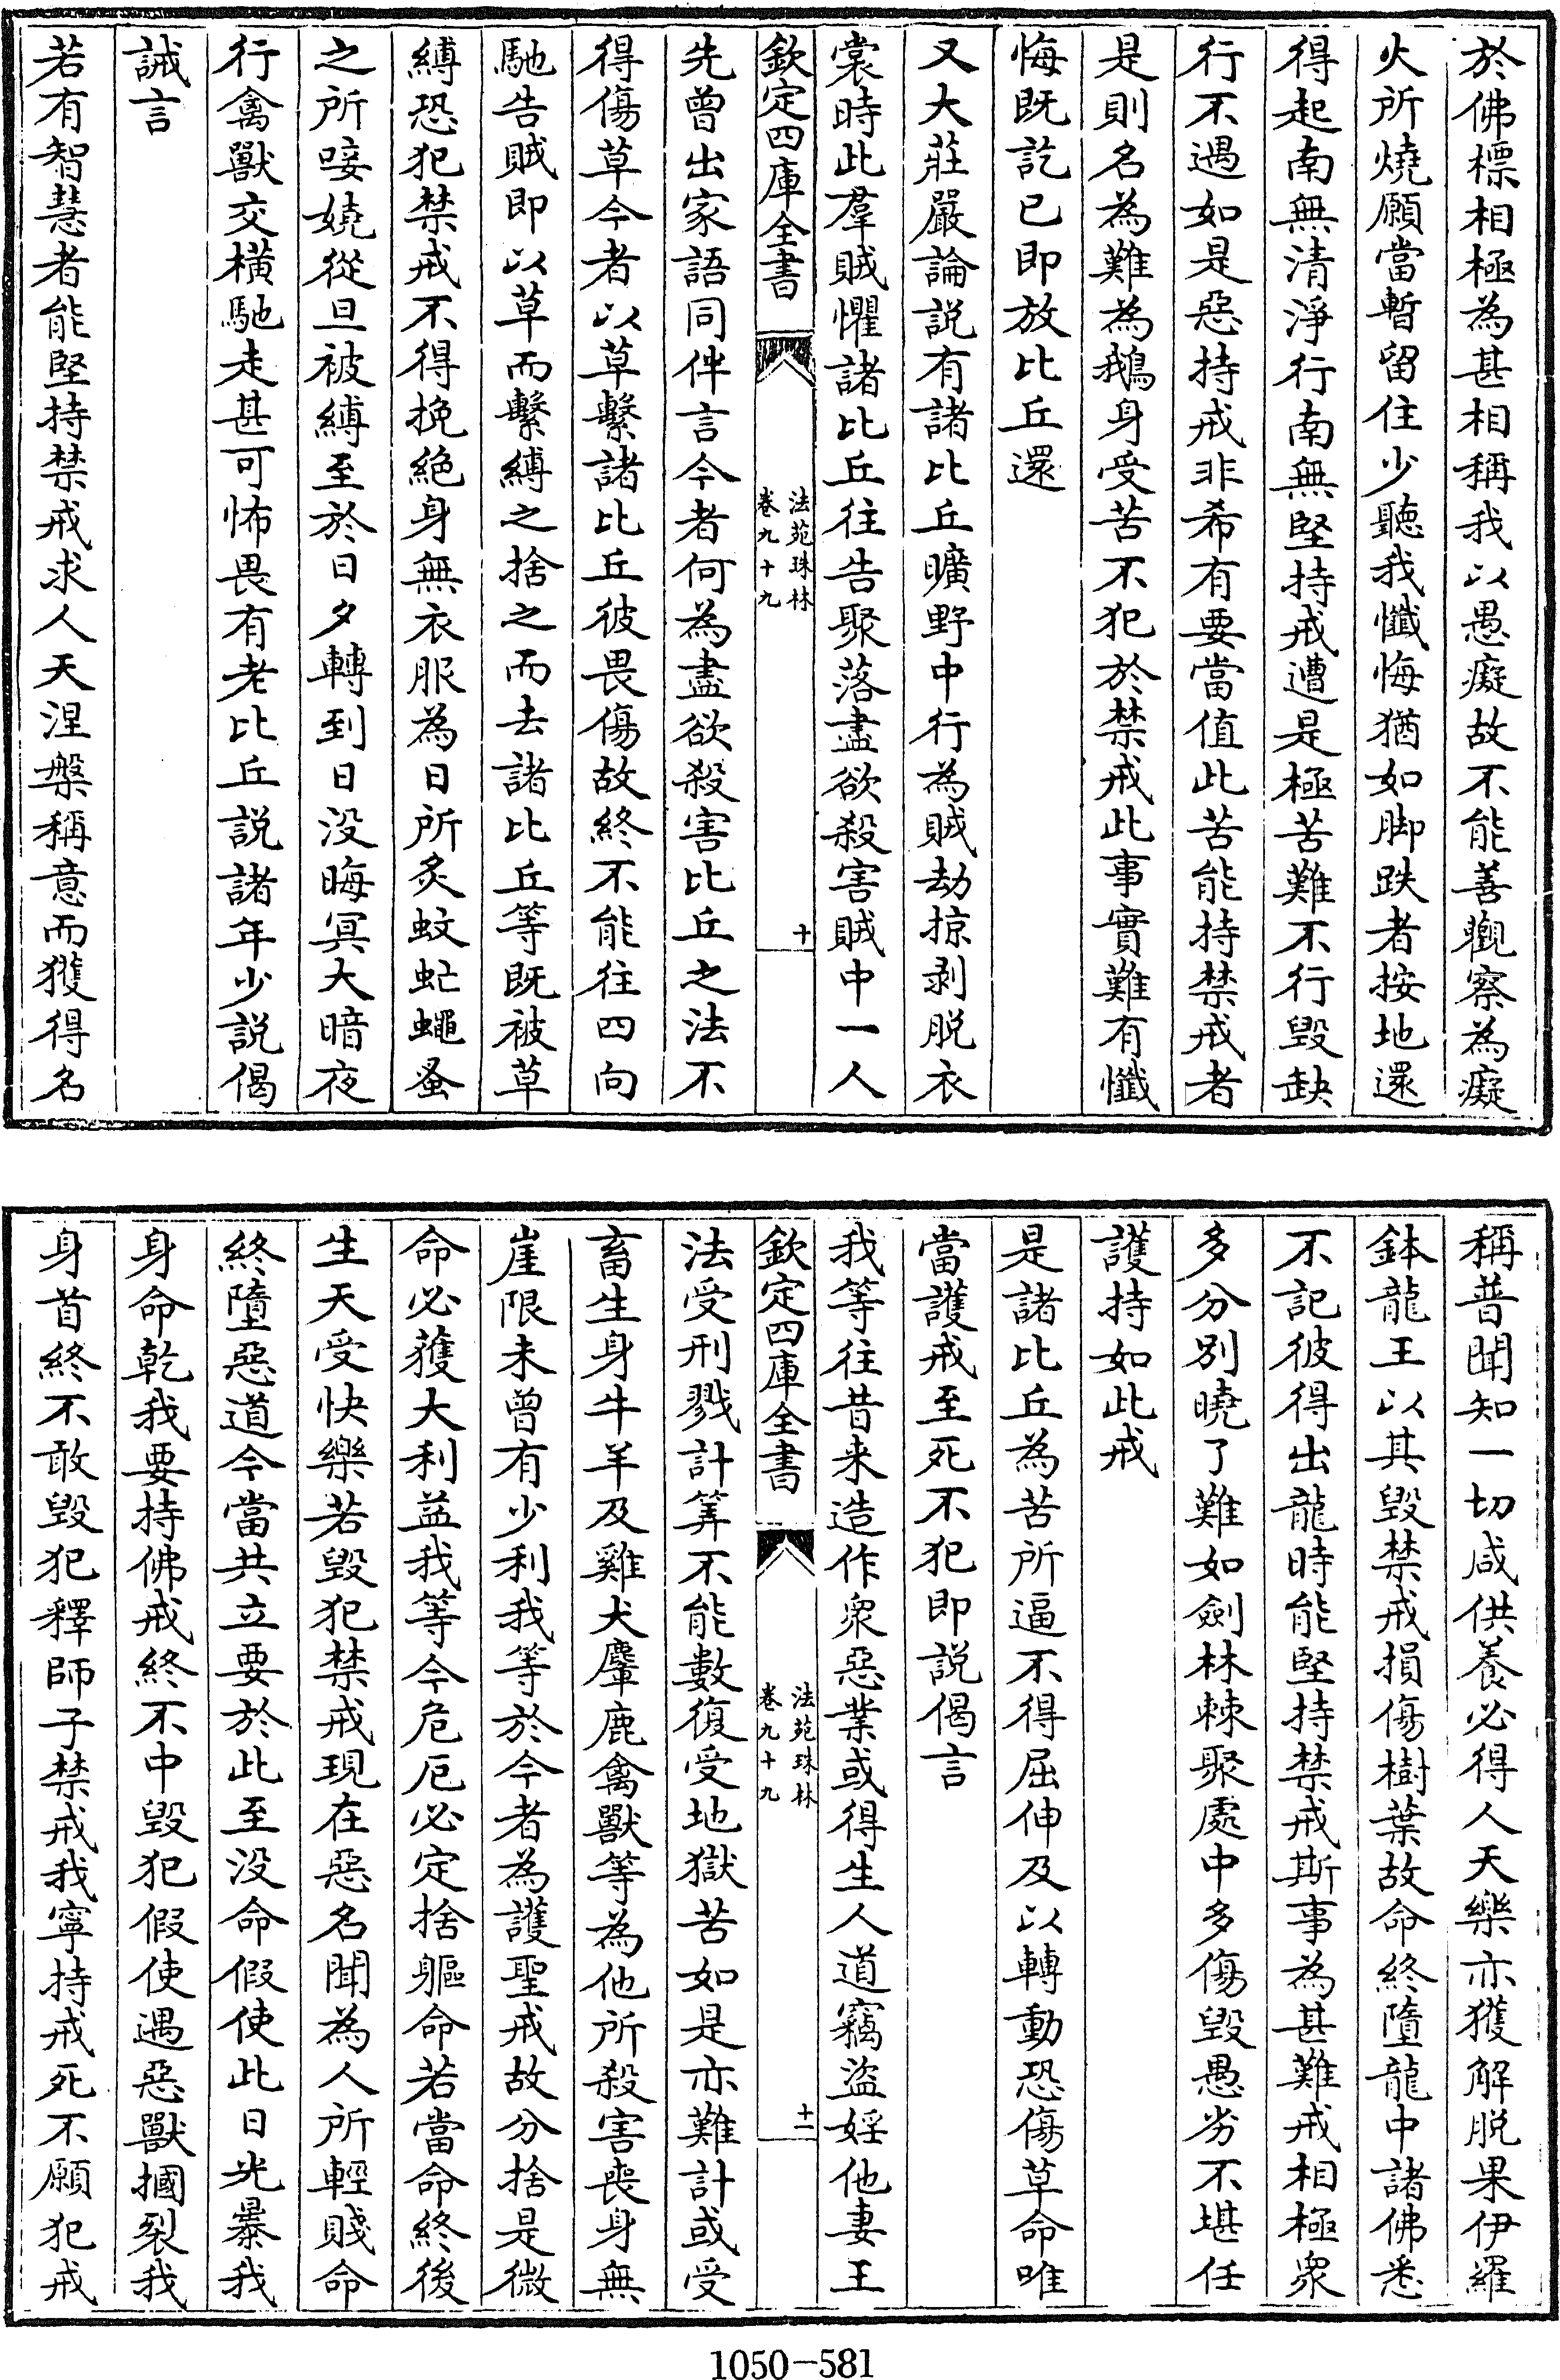 於佛標相極為甚相稱我以愚癡故不能善觀察為癡
火所燒願當暫留住少聽我懺悔猶如脚跌者按地還
得起南無清淨行南無堅持戒遭是極苦難不行毀缺
行不遇如是惡持戒非希有要當值此苦能持禁戒者
是則名為難為鵝身受苦不犯於禁戒此事實難有懺
悔既訖已即放比丘還
又大莊嚴論說有諸比丘曠野中行為賊劫掠剥脱衣
裳時此羣賊懼諸比丘往告聚落盡欲殺害賊中一人
欽定四庫全書
法苑珠林
卷九十九
十
先曾出家語同伴言今者何為盡欲殺害比丘之法不
得傷草今者以草繫諸比丘彼畏傷故終不能往四向
馳告賊即以草而繫縛之捨之而去諸比丘等既被草
縛恐犯禁戒不得挽絶身無衣服為日所炙蚊虻蠅蚤
之所唼嬈從旦被縛至於日夕轉到日没晦冥大暗夜
行禽獸交橫馳走甚可怖畏有老比丘說諸年少說偈
誡言
若有智慧者能堅持禁戒求人天涅槃稱意而獲得名
稱普聞知一切咸供養必得人天樂亦獲解脱果伊羅
鉢龍王以其毀禁戒損傷樹葉故命終墮龍中諸佛悉
不記彼得出龍時能堅持禁戒斯事為甚難戒相極衆
多分別曉了難如劍林棘聚處中多傷毀愚劣不堪任
護持如此戒
是諸比丘為苦所逼不得屈伸及以轉動恐傷草命唯
當護戒至死不犯即説偈言
我等往昔来造作衆惡業或得生人道竊盜婬他妻王
欽定四庫全書
法苑珠林
卷九十九
十一
法受刑戮計筭不能數復受地獄苦如是亦難計或受
畜生身牛羊及雞犬麞鹿禽獸等為他所殺害喪身無
崖限未曾有少利我等於今者為護聖戒故分捨是微
命必獲大利益我等今危厄必定捨軀命若當命終後
生天受快樂若毀犯禁戒現在惡名聞為人所輕賤命
終墮惡道今當共立要於此至没命假使此日光暴我
身命乾我要持佛戒終不中毀犯假使遇惡獸摑裂我
身首終不敢毀犯釋師子禁戒我寧持戒死不願犯戒
1050-581